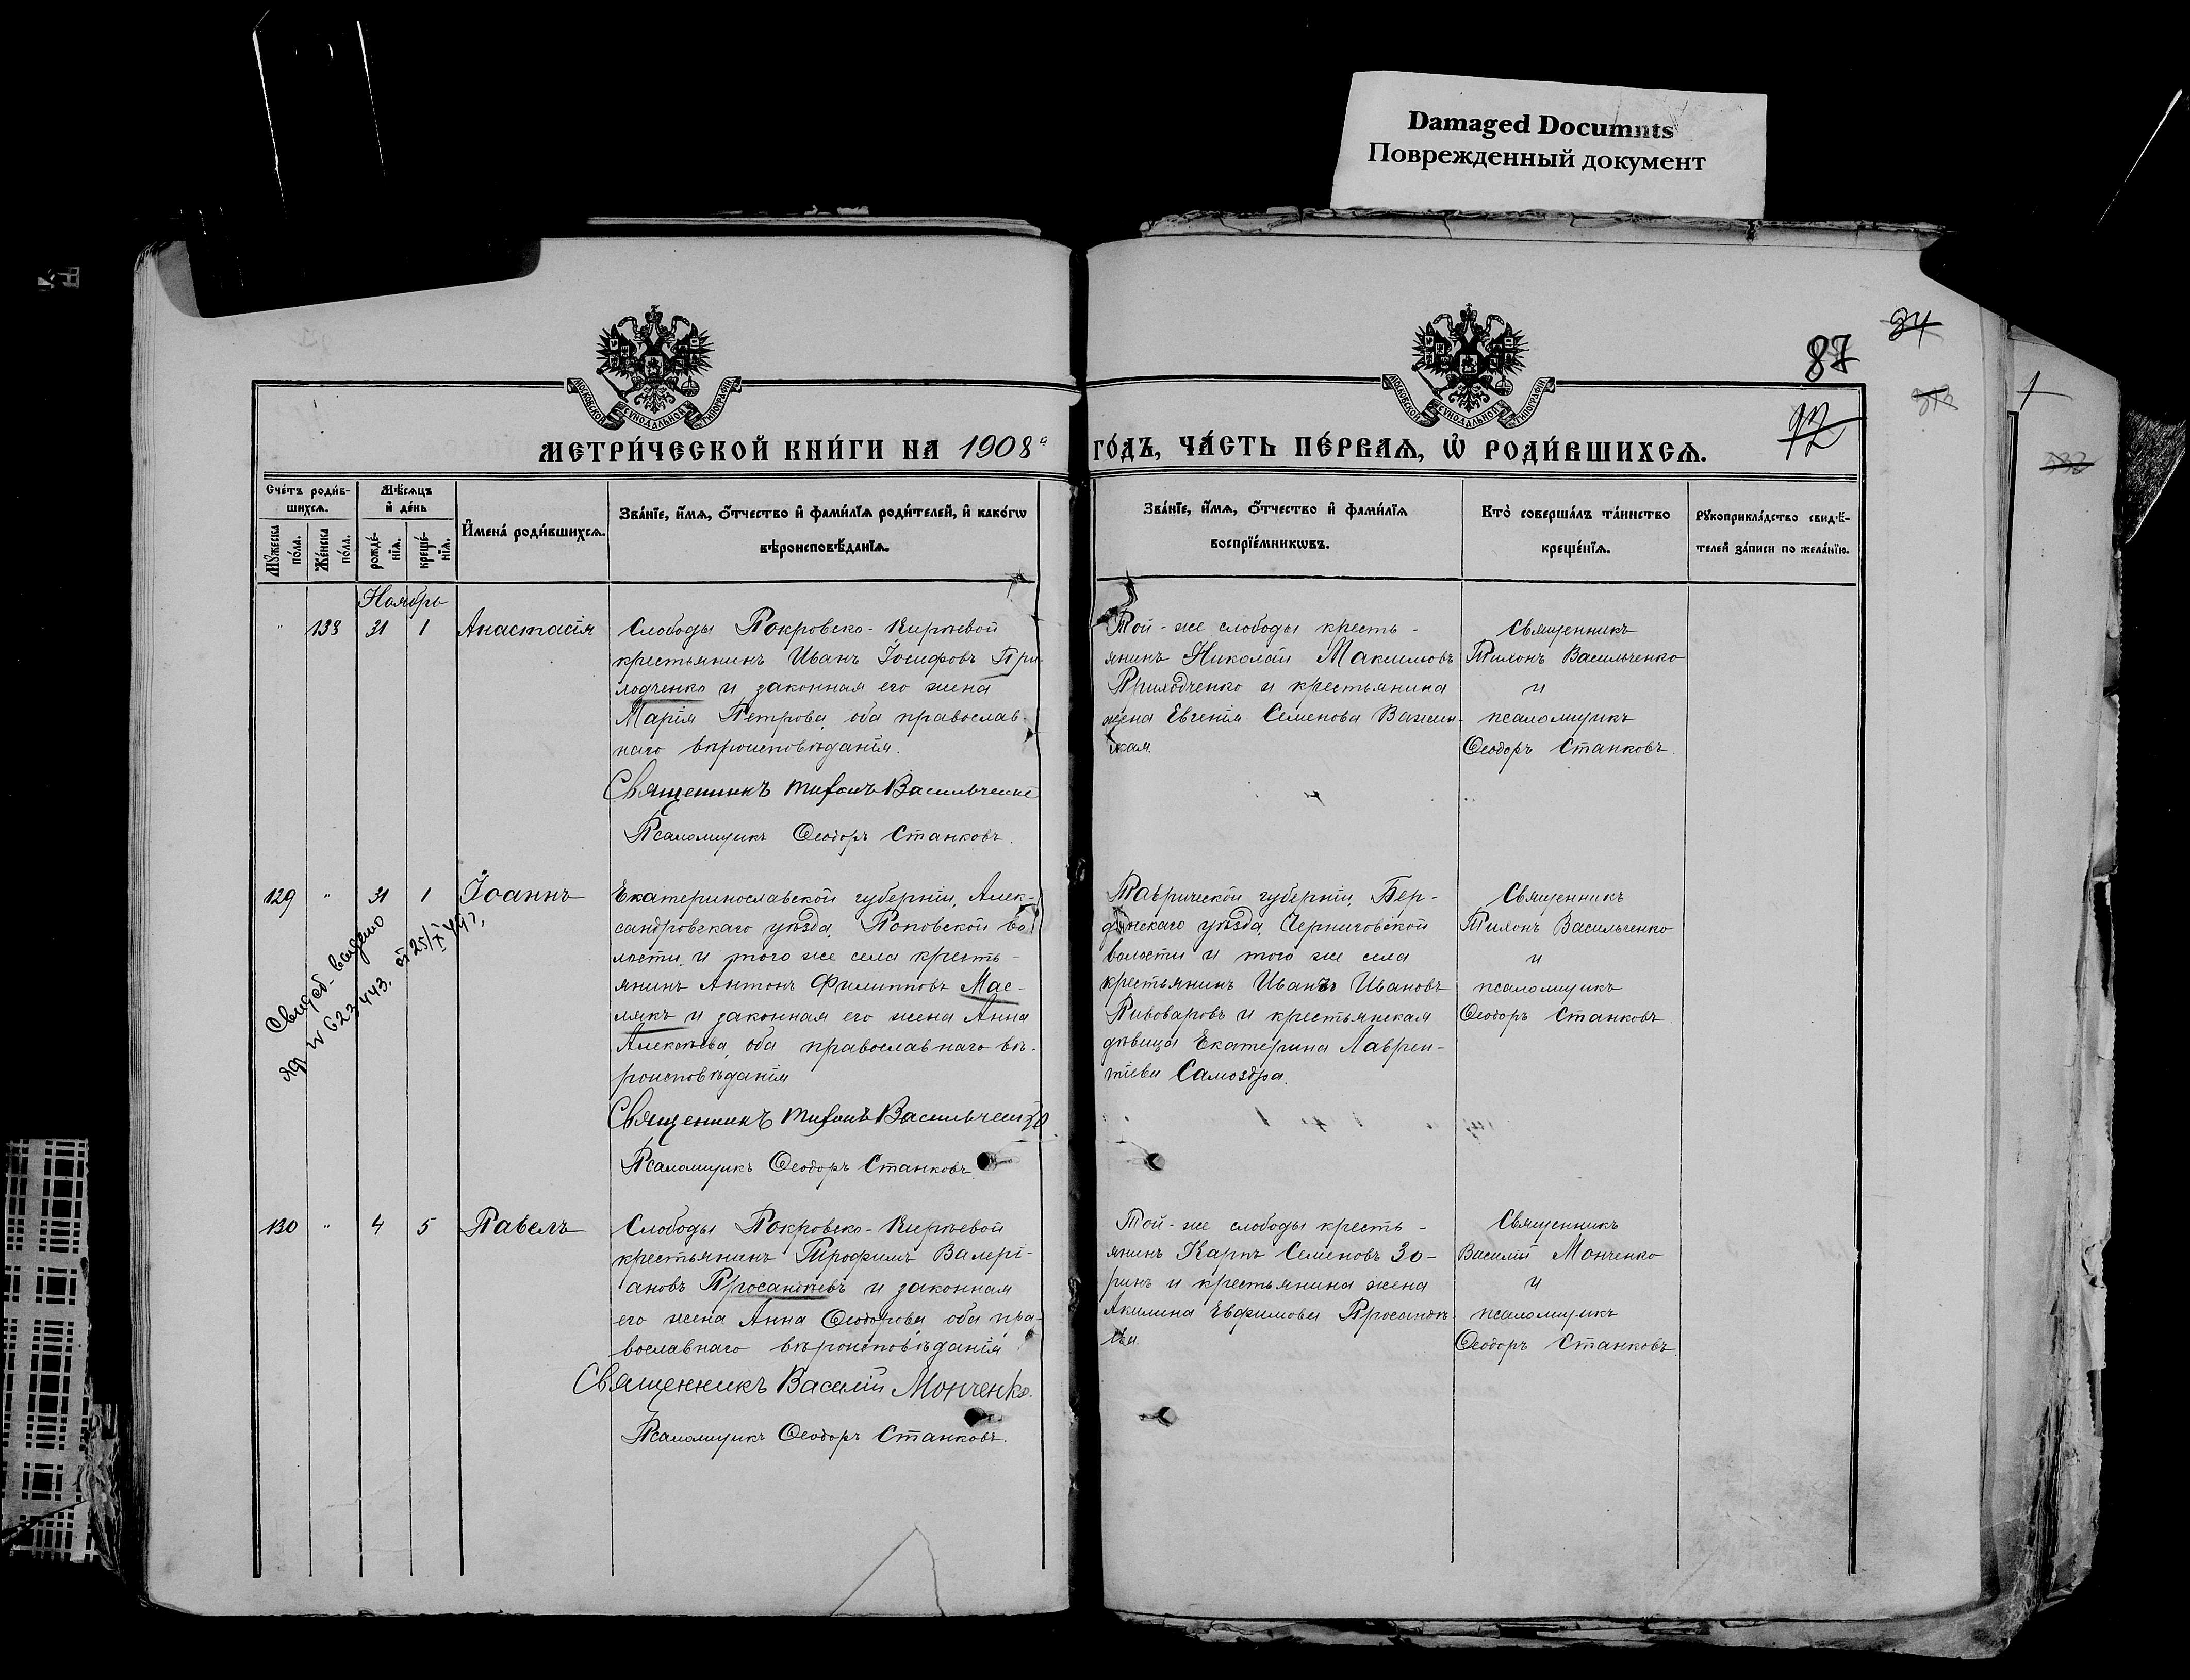 Damaged Documnts
Поврежденный документ
87
МЕТРИ́ЧЕСКОЙ КНИ́ГИ НА 1908й
ГО́ДЪ, ЧА́СТЬ ПЕ́РВАѦ, Ѡ҆ РОДИ́ВШИХСѦ.
МОСКОВСКОЙ СѴНОДАЛЬНОЙ ТИПОГРАФІИ
МОСКОВСКОЙ СѴНОДАЛЬНОЙ ТИПОГРАФІИ
Сче́тъ роди́в-
шихсѧ.
Мꙋ́жеска по́ла.
Же́нска по́ла.
Мѣ́сѧцъ
и҆ де́нь
рожде́-
нїѧ.
креще́-
нїѧ.
И҆мена̀ роди́вшихсѧ.
Зва́нїе, и҆́мѧ, ѻ҆́тчество и҆ фами́лїѧ роди́телей, и҆ како́гѡ
вѣроисповѣ́данїѧ.
Зва́нїе, и҆́мѧ, ѻ҆́тчество и҆ фами́лїѧ
воспрїе́мникѡвъ.
Кто̀ соверша́лъ та́инство
креще́нїѧ.
Рꙋкоприкла́дство свидѣ́-
телей за́писи по жела́нїю.
Ноябрь
" 138 31 1 Анастасія
Слободы Покровско-Кирѣевой
крестьянинъ Иванъ Іосифовъ При-
ходченко и законная его жена
Марія Петрова, оба православ-
наго вѣроисповѣданія.
Священникъ Тихонъ Васильченко
Псаломщикъ Ѳеодоръ Станковъ.
Той-же слободы кресть-
янинъ Николай Максимовъ
Приходченко и крестьянина
жена Евгенія Семенова
Священникъ
Тихонъ Васильченко
и
псаломщикъ
Ѳеодоръ Станковъ.
129 " 31 1 Іоаннъ
Екатеринославской губерніи, Алек-
сандровскаго уѣзда, Поповской во
лости, и того же села кресть-
янинъ Антонъ Филипповъ Мас-
лякъ и законная его жена Анна
Алексѣева, оба православнаго вѣ-
роисповѣданія
Священникъ Тихонъ Васильченко
Псаломщикъ Ѳеодоръ Станковъ.
Таврической губерніи, Бер-
дянскаго уѣзда, Черниговской
волости и того же села
крестьянинъ Иванъ Ивановъ
Пивоваровъ и крестьянская
дѣвица Екатерина Лаврен-
тіева Самоздра.
Священникъ
Тихонъ Васильченко
и
псаломщикъ
Ѳеодоръ Станковъ.
Свидет. выдано
ЯФ № 623443. от 25/X 49 г.
130 " 4 5 Павелъ
Слободы Покровско-Кирѣевой
крестьянинъ Трофимъ Валері-
ановъ Просандѣевъ и законная
его жена Анна Ѳеодорова, оба пра-
вославнаго вѣроисповѣданія
Священникъ Василій Монченко.
Псаломщикъ Ѳеодоръ Станковъ.
Той-же слободы кресть-
янинъ Карпъ Семеновъ Зо-
ринъ и крестьянина жена
Акилина Евфимова
Священникъ
Василій Монченко
и
псаломщикъ
Ѳеодоръ Станковъ.